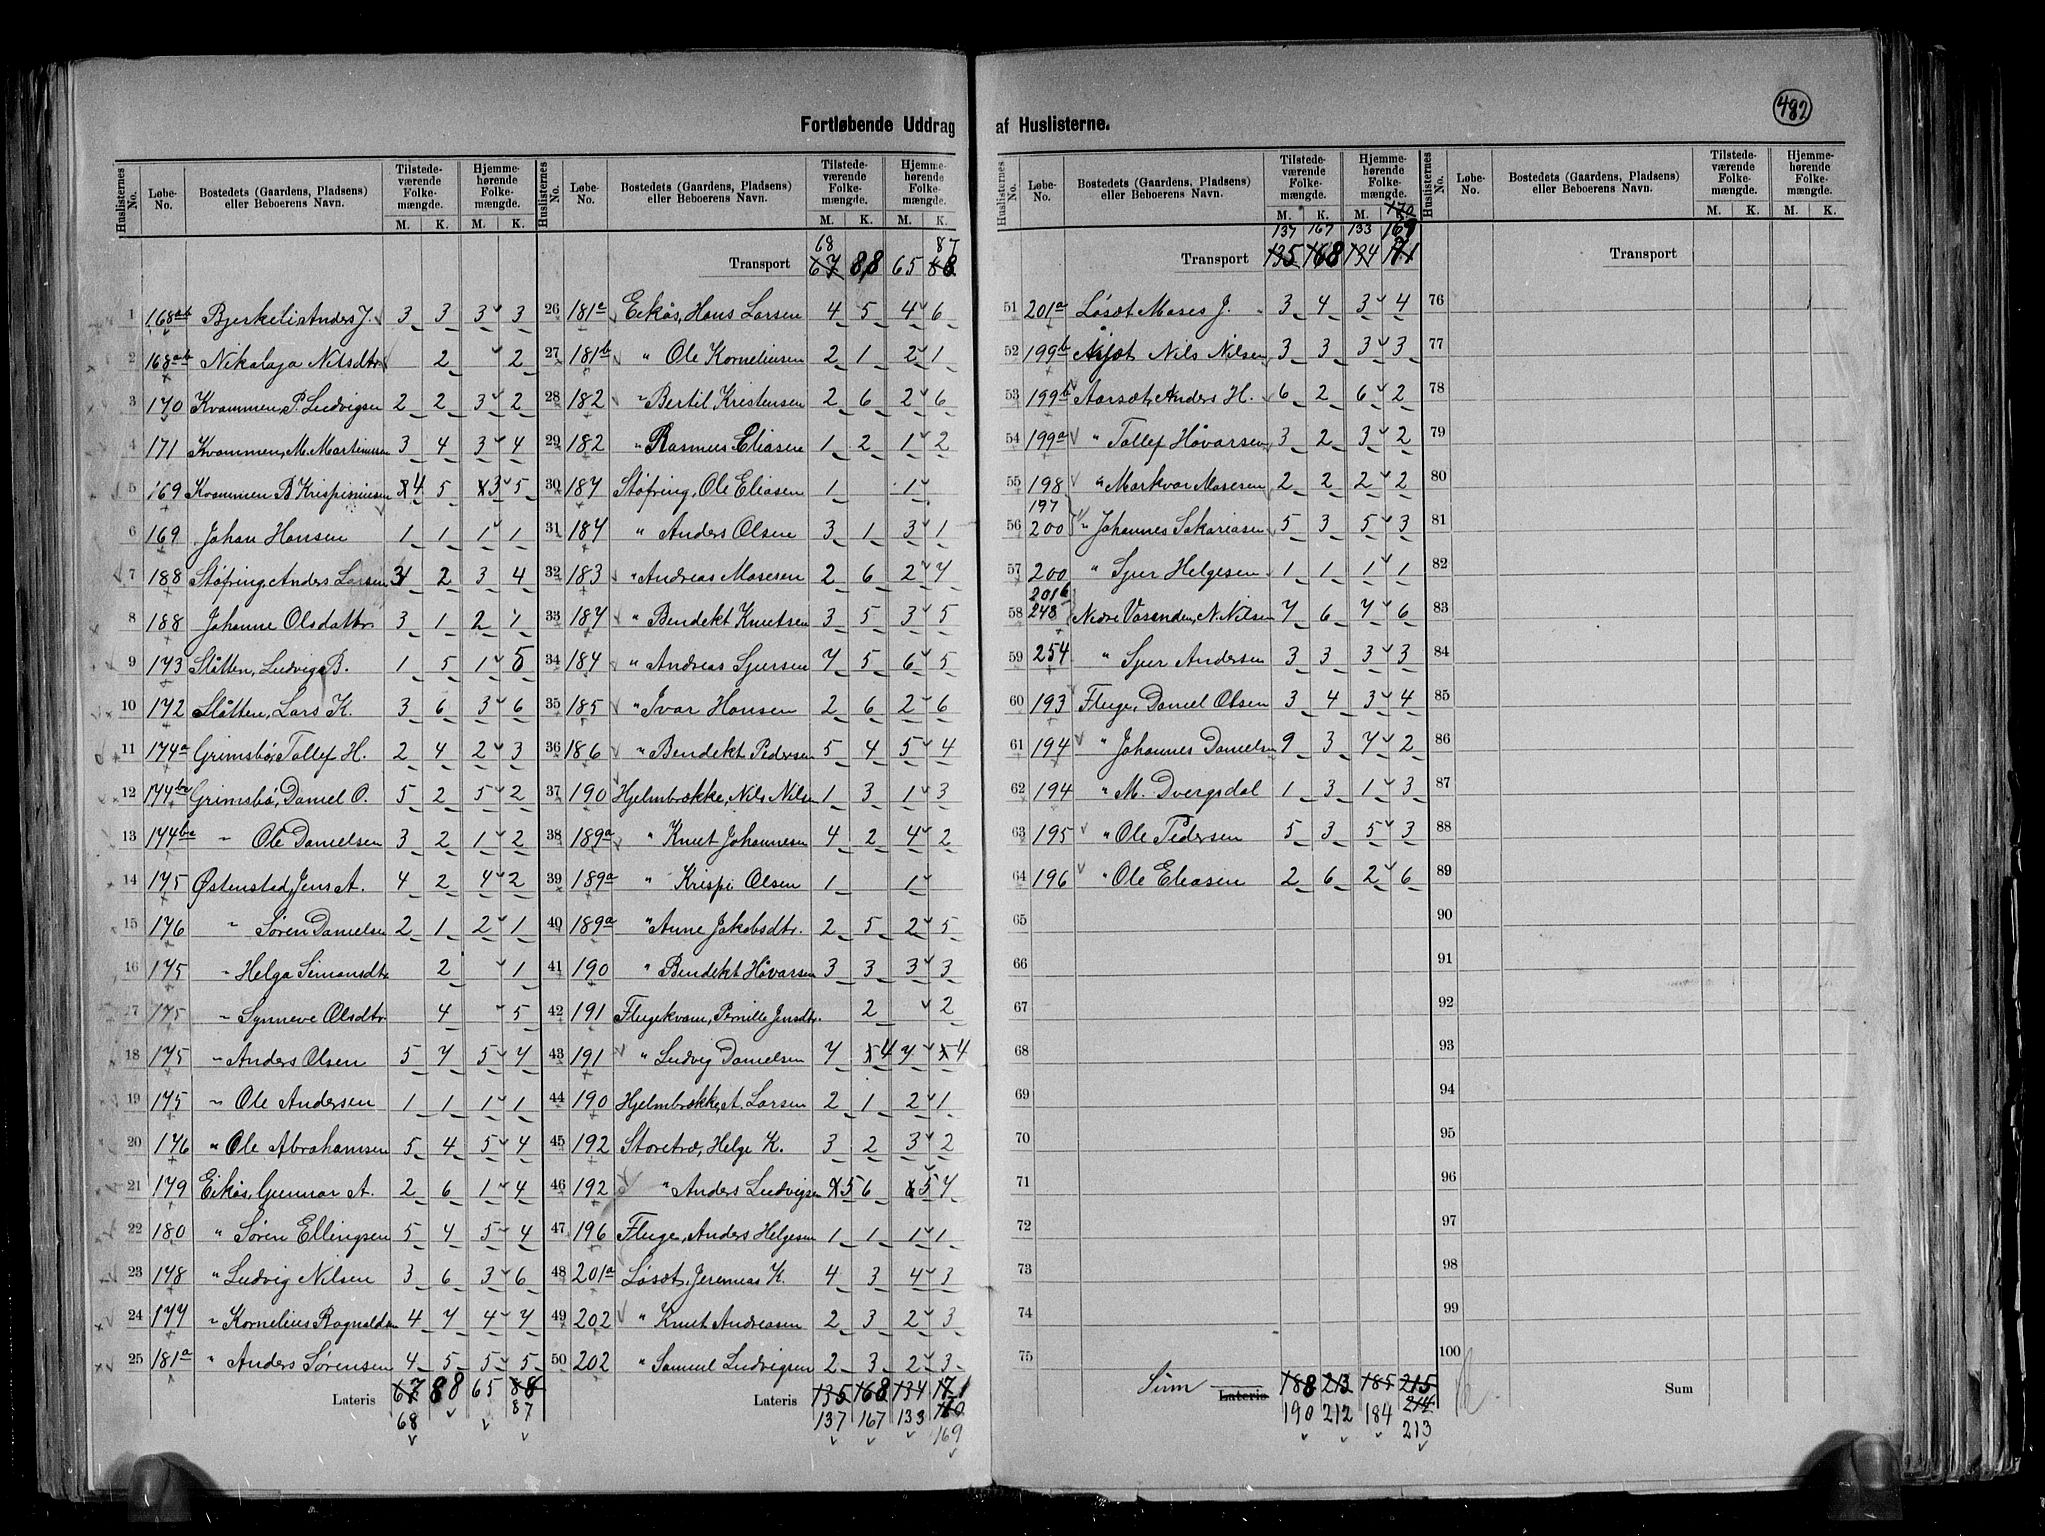 482
Fortløbende Uddrag af Huslisterne.
Huslisternes No. Løbe-No. Bostedets (Gaardens, Pladsens) eller Beboerens Navn. Tilstedeværende Folkemængde. M. K. Hjemmehørende Folkemængde. M. K.
1 168ab Bjerkeli Anders J. 3 3 3 3
2 168ab Nikolaja Nilsdtr 2 2
3 170 Kvammen, P. Ludvigsen 2 2 3 2
4 171 Kvammen, M. Martinussen 3 4 3 4
5 169 Kvammen B Krispinusen 4 5 3 5
6 169 Johan Hansen 1 1 1 1
7 188 Støfring Anders Larsen 2 3 4
8 188 Johanne Olsdattr 3 1 2 1
9 173 Slåtten, Ludvig B. 1 5 1 5
10 172 Slåtten, Lars K. 3 6 3 6
11 174a Grimsbø, Tollef H. 2 4 2 3
12 174bc Grimsbø, Daniel O. 5 2 5 2
13 174bc " Ole Danielsen 3 2 1 2
14 175 Østenstad, Jens A. 4 2 4 2
15 176 " Søren Danielsen 2 1 2 1
16 175 " Helga Simonsdtr 2 1
17 175 " Synneve Olsdtr 4 5
18 175 " Anders Olsen 5 7 5 7
19 175 " Ole Andersen 1 1 1 1
20 176 " Ole Abrahamsen 5 4 5 4
21 179 Eikås, Gunnar A. 2 6 1 4
22 180 " Søren Ellingsen 5 4 5 4
23 178 " Ludvig Nilsen 3 6 3 6
24 177 " Kornelius Ragnaldsen 4 7 4 7
25 181a " Anders Sørensen 4 5 5 5
Lateris 67 88 65 88
68 87
Huslisternes No. Løbe-No. Bostedets (Gaardens, Pladsens) eller Beboerens Navn. Tilstedeværende Folkemængde. M. K. Hjemmehørende Folkemængde. M. K.
68 87
Transport 67 88 65 88
26 181a Eikås, Hans Larsen 4 5 4 6
27 181b " Ole Korneliusen 2 1 2 1
28 182 " Bertil Kristensen 2 6 2 6
29 182 " Rasmus Eliasen 1 2 1 2
30 187 Støfring, Ole Eliasen 1 1
31 187 " Anders Olsen 3 1 3 1
32 183 " Andreas Mosesen 2 6 2 7
33 187 " Bendekt Knutsen 3 5 3 5
34 184 " Andreas Sjursen 7 5 6 5
35 185 " Ivar Hansen 2 6 2 6
36 186 " Bendekt Pedersen 5 4 5 4
37 190 Hjelmbrække, Nils Nilsen 1 3 1 3
38 189a " Knut Johannesen 4 2 4 2
39 189a " Krispi Olsen 1 1
40 189a " Anne Jakobsdtr. 2 5 2 5
41 190 " Bendekt Håvarsen 3 3 3 3
42 191 Flugekvam, Pernille Jensdtr. 2 2
43 191 " Ludvig Danielsen 7 4 7 4
44 190 Hjelmbrække, A. Larsen 2 1 2 1
45 192 Storetræ, Helge K. 3 2 3 2
46 192 " Anders Ludvigsen 5 6 5 7
47 196 Fluge, Anders Helgesen 1 1 1 1
48 201a Løsæt, Jeremias K. 4 3 4 3
49 202 " Knut Andreasen 2 3 2 3
50 202 " Samuel Ludvigsen 2 3 2 3
Lateris 135 168 134 171
137 167 133 170
169
Huslisternes No. Løbe-No. Bostedets (Gaardens, Pladsens) eller Beboerens Navn. Tilstedeværende Folkemængde. M. K. Hjemmehørende Folkemængde. M. K.
170
137 167 133 169
Transport 135 168 134 171
51 201a Løsæt Moses J. 3 4 3 4
52 199b Nils Nilsen 3 3 3 3
53 199b Aarsæt, Anders H. 6 2 6 2
54 199a " Tollef Håvarsen 3 2 3 2
55 198 " Markvar Mosesen 2 2 2 2
197
56 200 " Johannes Sakariasen 5 3 5 3
57 200 " Sjur Helgesen 1 1 1 1
201b
58 248 Nedre Vasenden, N. Nilsen 7 6 7 6
59 254 " Sjur Andersen 3 3 3 3
60 193 Fluge, Daniel Olsen 3 4 3 4
61 194 " Johannes Danielsen 9 3 7 2
62 194 " M. Dvergsdal 1 3 1 3
63 195 " Ole Pedersen 5 3 5 3
64 196 " Ole Eliasen 2 6 2 6
65
66
67
68
69
70
71
72
73
74
75
Sum Lateris 188 213 185 215
190 212 184 214
213
Huslisternes No. Løbe-No. Bostedets (Gaardens, Pladsens) eller Beboerens Navn. Tilstedeværende Folkemængde. M. K. Hjemmehørende Folkemængde. M. K.
Transport
76
77
78
79
80
81
82
83
84
85
86
87
88
89
90
91
92
93
94
95
96
97
98
99
100
Sum